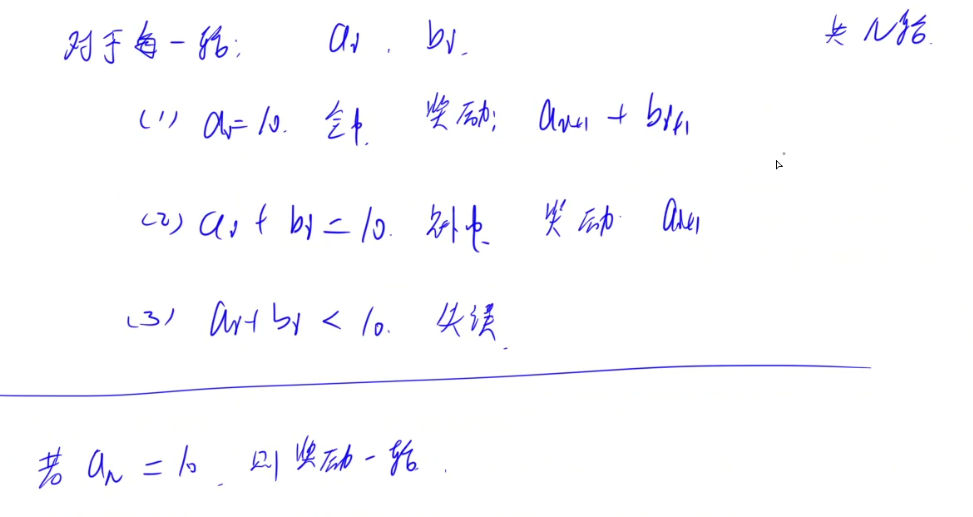 对于每一轮: aᵣ, bᵣ. 共N轮.
(1) aᵣ=10. 全中. 奖励: aᵣ₊₁ + bᵣ₊₁
(2) aᵣ + bᵣ = 10. 补中. 奖励. aᵣ₊₁
(3) aᵣ + bᵣ < 10. 失误.
若 a_N = 10. 则奖励一轮.